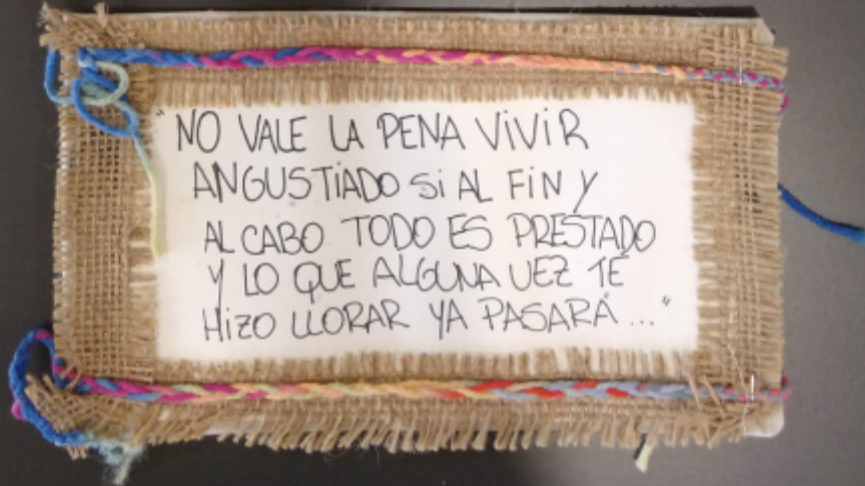 "NO VALE LA PENA ViViR
ANGUSTiADO Si AL FiN Y
AL CABO TODO ES PRESTADO
Y LO QUE ALGUNA VEZ TE
HiZO LLORAR YA PASARÁ..."